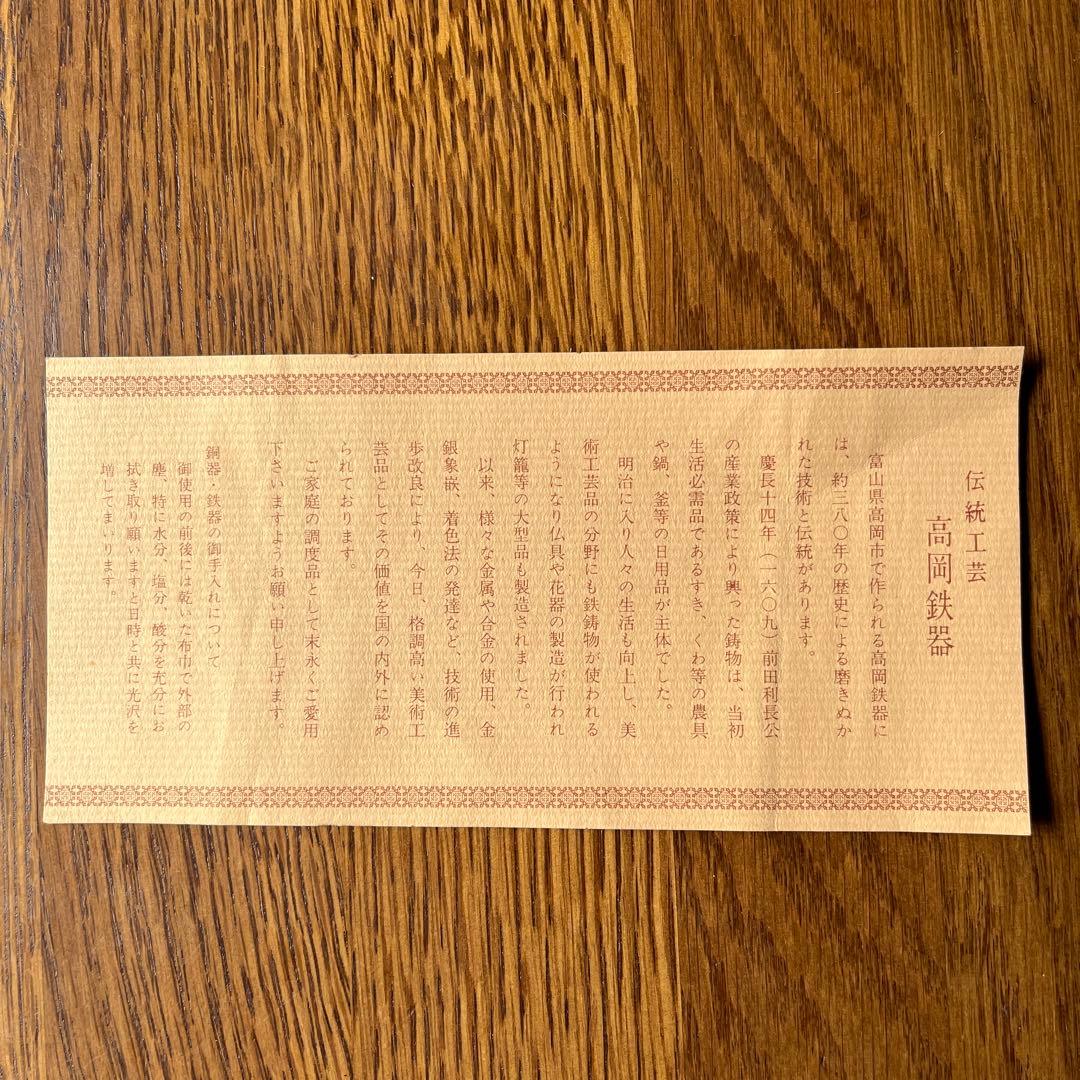 伝統工芸
高岡鉄器
富山県高岡市で作られる高岡鉄器に
は、約三八〇年の歴史による磨きぬか
れた技術と伝統があります。
慶長十四年(一六〇九)前田利長公
の産業政策により興った鋳物は、当初
生活必需品であるすき、くわ等の農具
や鍋、釜等の日用品が主体でした。
明治に入り人々の生活も向上し、美
術工芸品の分野にも鉄鋳物が使われる
ようになり仏具や花器の製造が行われ
灯籠等の大型品も製造されました。
以来、様々な金属や合金の使用、金
銀象嵌、着色法の発達など、技術の進
歩改良により、今日、格調高い美術工
芸品としてその価値を国の内外に認め
られております。
ご家庭の調度品として末永くご愛用
下さいますようお願い申し上げます。
銅器・鉄器の御手入れについて
御使用の前後には乾いた布巾で外部の
塵、特に水分、塩分、酸分を充分にお
拭き取り願いますと日時と共に光沢を
増してまいります。